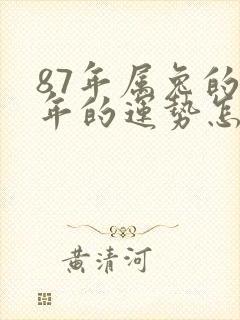 87年属兔的
年的运势怎
黄清河